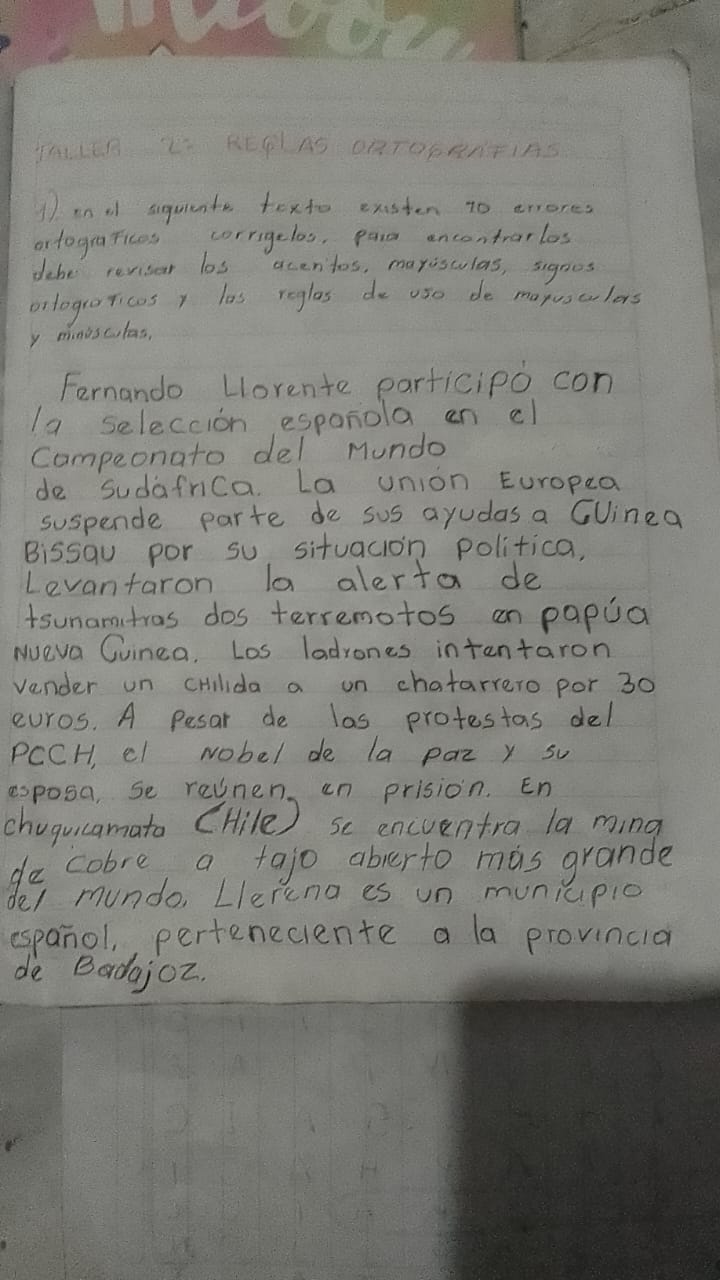 TALLER 2: REGLAS ORTOGRAFIAS
1) en el siguiente texto existen 10 errores
ortograficos corrigelos, para encontrarlos
debe revisar los acentos, mayúsculas, signos
ortograficos y las reglas de uso de mayusculas
y minúsculas,
Fernando Llorente participó con
la selección española en el
Campeonato del Mundo
de sudáfrica. La unión Europea
suspende parte de sus ayudas a GUinea
Bissau por su situación política,
Levantaron la alerta de
tsunamitras dos terremotos en papúa
Nueva Guinea. Los ladrones intentaron
vender un CHilida a un chatarrero por 30
euros. A pesar de las protestas del
PCCH, el Nobel de la paz y su
esposa, se reúnen en prisión. En
chuquicamata (CHile) se encuentra la mina
de cobre a tajo abierto más grande
del mundo. Llerena es un municipio
español, perteneciente a la provincia
de Badajoz.